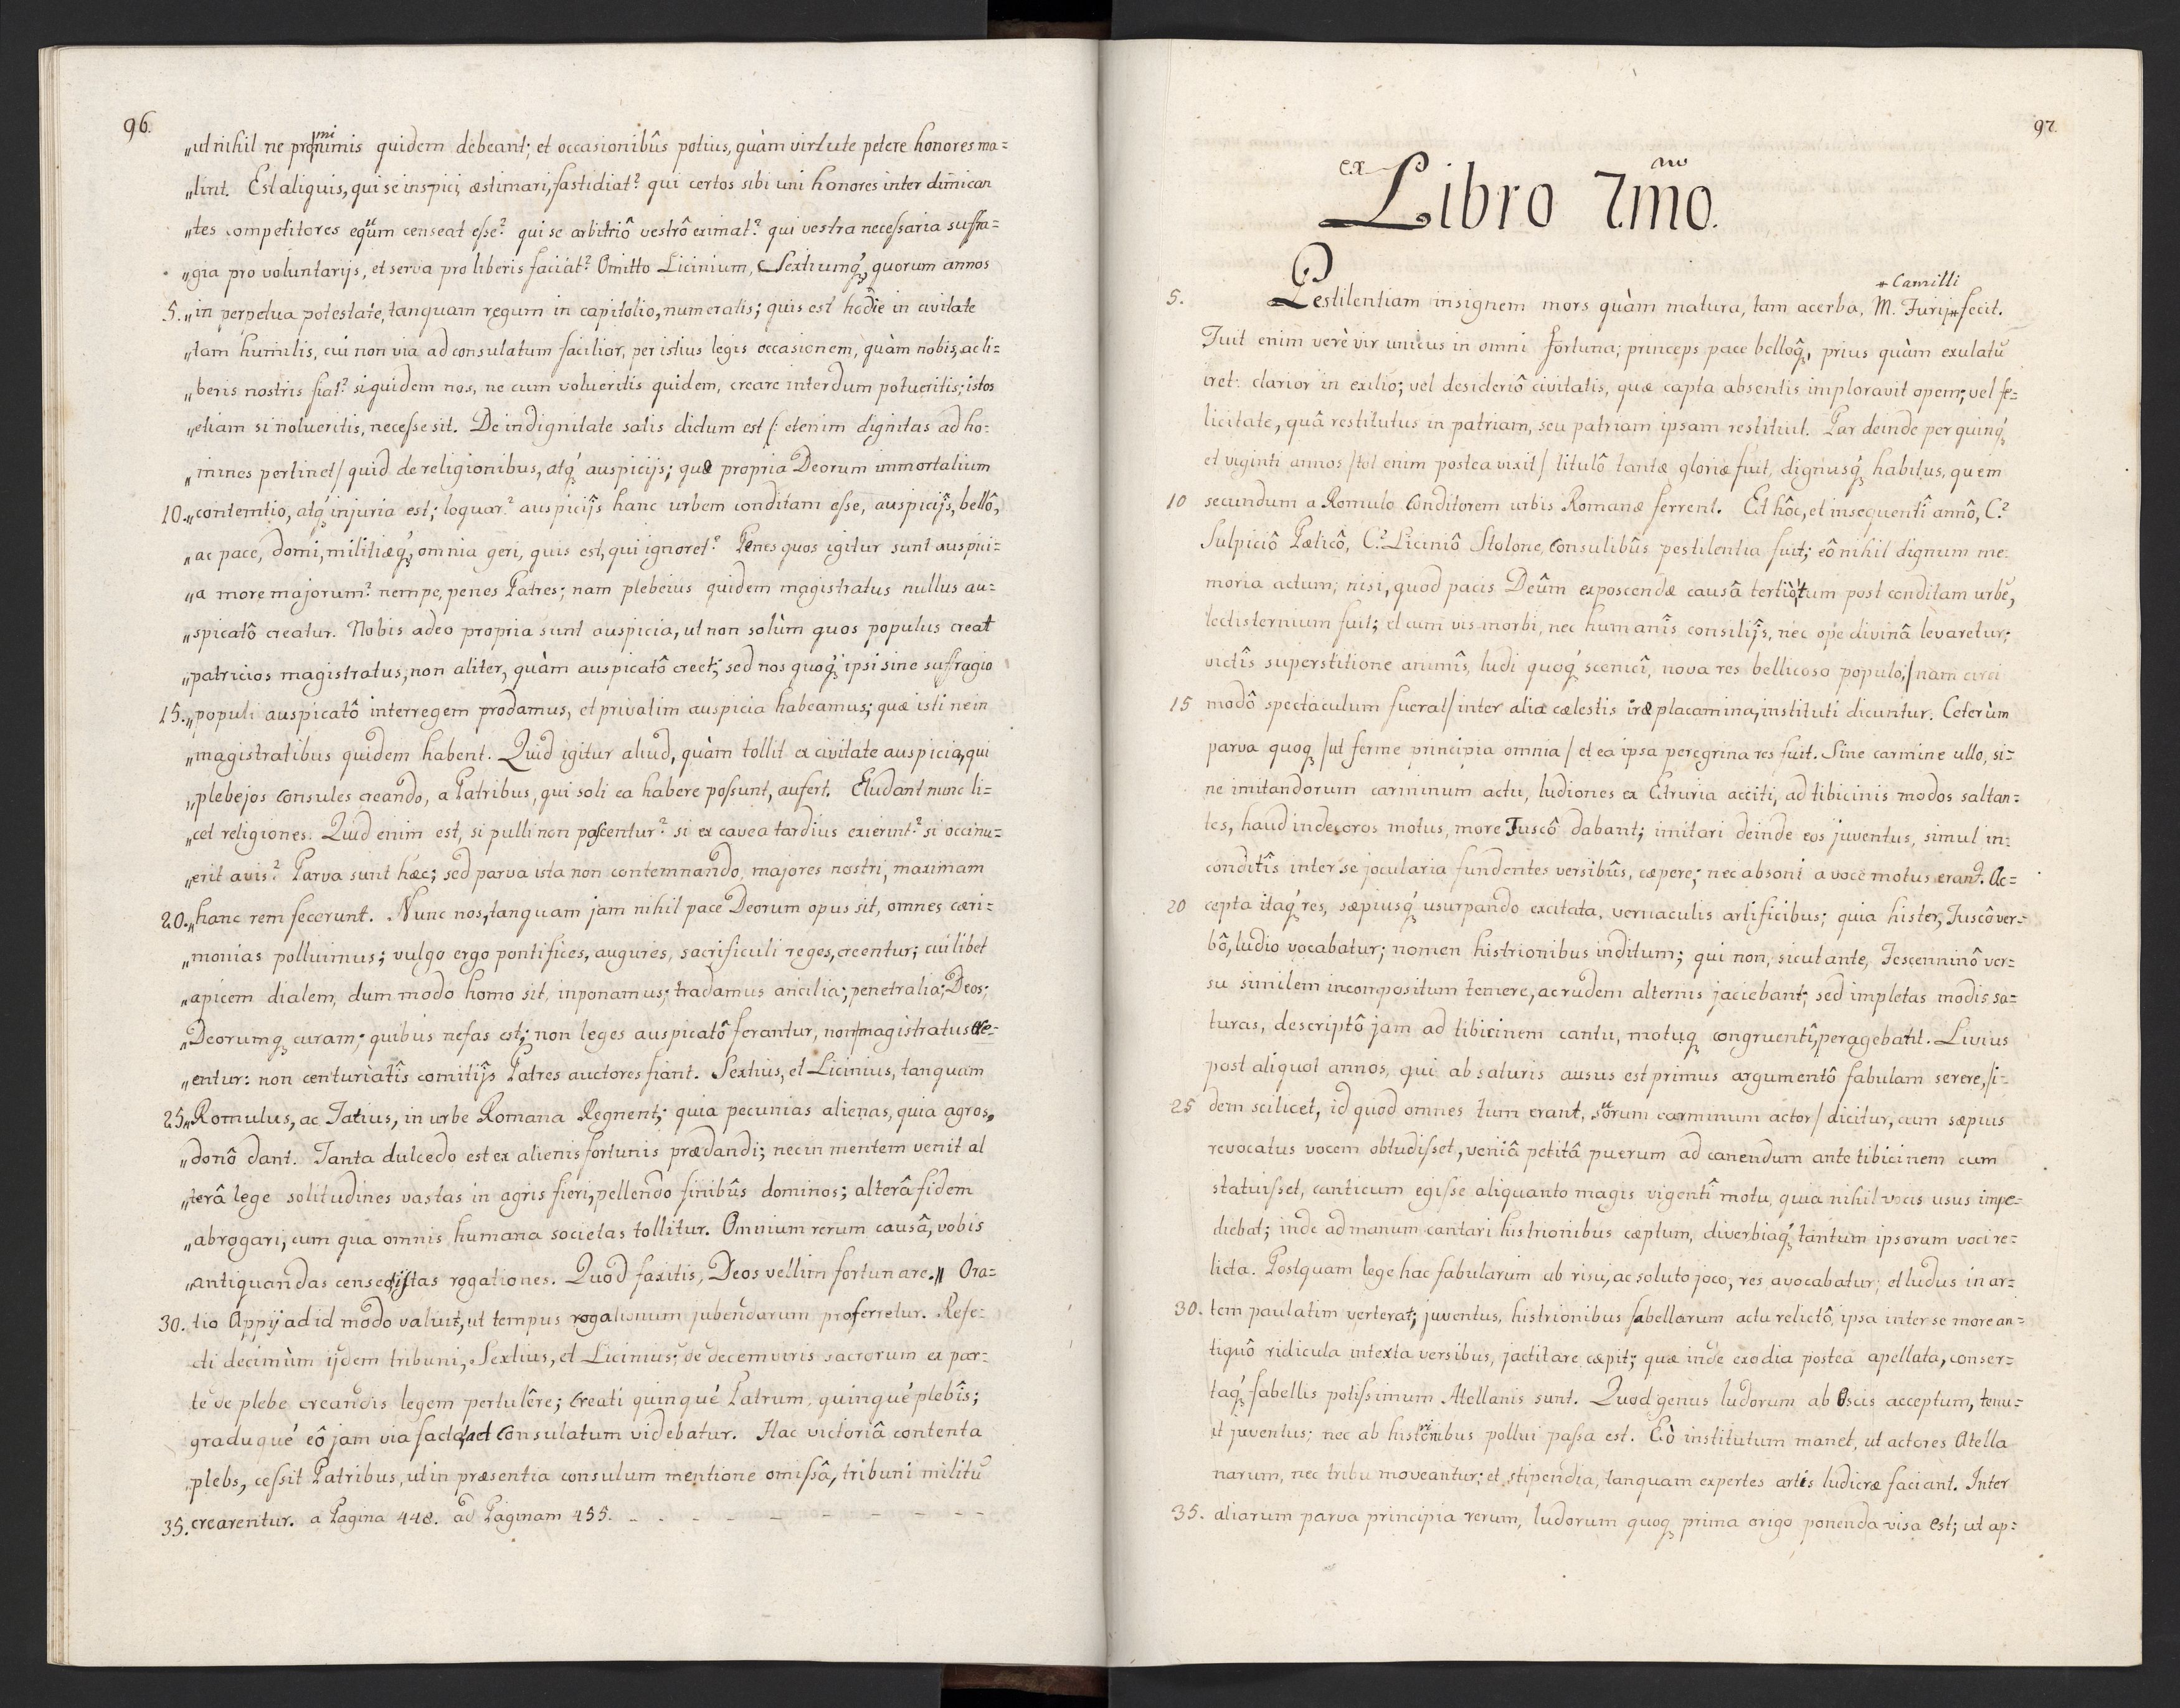 96.
„ut nihil ne proximis quidem debeant; et occasionibûs potius, quàm virtute petere honores ma=
„lint. Est aliquis, qui se inspici, æstimari, fastidiat? qui certos sibi uni honores inter dimican
„tes competitores equum censeat eſse? qui se arbitriô vestrô eximat? qui vestra neceſsaria suffra=
„gia pro voluntarijs, et serva pro liberis faciat? Omitto Licinium, Sextiumq́ꝫ, quorum annos
5. „in perpetua potestate, tanquam regum in capitolio, numeratis; quis est hodie in civitate
„tam humilis, cui non via ad consulatum facilior, per istius legis occasionem, quàm nobis, ac li=
„beris nostris fiat? siquidem nos, ne cum volueritis quidem, creare interdum potueritis; istos
„etiam si nolueritis, neceſse sit. De indignitate satis dictum est /: etenim dignitas ad ho=
„mines pertinet/ quid de religionibus, atq́ꝫ auspicijs; quæ propria Deorum immortalium
10. „contemtio, atq́ꝫ injuria est; loquar? auspicijs hanc urbem conditam eſse, auspicijs, bellô,
„ac pace, domi, militiæq́ꝫ, omnia geri, quis est, qui ignoret? Penes quos igitur sunt auspici=
„a more majorum? nempe, penes Patres; nam plebeius quidem magistratus nullus au=
„spicatô creatur. Nobis adeo propria sunt auspicia, ut non solùm quos populus creat
„patricios magistratus, non aliter, quàm auspicatô creet; sed nos quoq́ꝫ ipsi sine sufragio
15. „populi auspicatô interregem prodamus, et privatim auspicia habeamus; quæ isti ne in
„magistratibus quidem habent. Quid igitur aliud, quàm tollit ex civitate auspicia, qui
„plebejos Consules creando, a Patribus, qui soli ea habere poſsunt, aufert. Eludant nunc li=
„cet religiones. Quid enim est, si pulli non pascentur? si ex cavea tardius exierint? si occinu=
„erit avis? Parva sunt hæc; sed parva ista non contemnando, majores nostri, maximam
20. „hanc rem fecerunt. Nunc nos, tanquam jam nihil pace Deorum opus sit, omnes cæri=
„monias polluimus; vulgo ergo pontifices, augures, sacrificuli reges, creentur; cuilibet
„apicem dialem, dum modo homo sit, inponamus; tradamus ancilia; penetralia; Deos;
„Deorumqꝫ curam; quibus nefas est; non leges auspicatô ferantur, non magistratus cre=
„entur: non centuriatîs comitijs Patres auctores fiant. Sextius, et Licinius, tanquam
25. „Romulus, ac Tatius, in urbe Romana Regnent; quia pecunias alienas, quia agros,
„donô dant. Tanta dulcedo est ex alienis fortunis prædandi; nec in mentem venit al
„terâ lege solitudines vastas in agris fieri, pellendo finibûs dominos; alterâ fidem
„abrogari, cum qua omnis humana societas tollitur. Omnium rerum causâ, vobis
„antiquandas censeo istas rogationes. Quod faxitis, Deos vellim fortunare.„ Ora=
30. tio Appij ad id modo valuit, ut tempus rogationum jubendarum proferretur. Refe=
cti decimùm ijdem tribuni, Sextius, et Licinius; de decemviris sacrorum ex par=
te de plebe creandis legem pertulêre; Creati quinqué Patrum, quinqué plebîs;
graduqué eô jam via facta, ad Consulatum videbatur. Hac victoriâ contenta
plebs, ceſsit Patribus, ut in præsentia consulum mentione omiſsâ, tribuni militũ
35. crearentur. a Pagina 448. ad Paginam 455. - - - - - - - - - -
97.
ex Libro 7mo. mo
* Camilli
5. Pestilentiam insignem mors quàm matura, tam acerba, M. Furij * fecit.
Fuit enim verè vir unicus in omni fortuna; princeps pace belloq́ꝫ, prius quàm exulatũ
iret: clarior in exilio; vel desideriô civitatis, quæ capta absentis imploravit opem; vel fe=
licitate, quâ restitutus in patriam, seu patriam ipsam restituit. Par deinde per quinq́ꝫ
et viginti annos /tot enim postea vixit/ titulô tantæ gloriæ fuit, dignusq́ꝫ habitus, quem
10 secundum a Romulo Conditorem urbis Romanæ ferrent. Et hôc, et insequentî annô, C?
Sulpiciô Pæticô, C? Liciniô Stolone, Consulibûs pestilentia fuit; eô nihil dignum me=
moria actum; nisi, quod pacis Deûm exposcendæ causâ tertiò, tum post conditam urbẽ,
lectisternium fuit; et cum vis morbi, nec humanîs consilijs, nec ope divinâ levaretur;
victîs superstitione animîs, ludi quoq́ꝫ scenicî, nova res bellicoso populo, /nam circi
15 modô spectaculum fuerat/ inter alia cælestis iræ placamina, instituti dicuntur. Ceterùm
parva quoqꝫ /ut ferme principia omnia/ et ea ipsa peregrina res fuit. Sine carmine ullo, si=
ne imitandorum carminum actu, ludiones ex Etruria acciti, ad tibicinis modos saltan=
tes, haud indecoros motus, more Tuscô dabant; imitari deinde eos juventus, simul in=
conditîs inter se jocularia fundentes versibûs, cæpere; nec absoni a voce motus erant. Ac=
20 cepta itaq́ꝫ res, sæpiusq́ꝫ usurpando excitata, vernaculis artificibus; quia hister, Tuscô ver=
bô, ludio vocabatur; nomen histrionibus inditum; qui non, sicut ante, Fescenninô ver=
su similem incompositum temere, ac rudem alternis jaciebant; sed impletas modis sa=
turas, descriptô jam ad tibicinem cantu, motuqꝫ congruentî, peragebant. Livius
post aliquot annos, qui ab saturis ausus est primus argumentô fabulam serere, /i=
25 dem scilicet, id quod omnes tum erant, suorum carminum actor/ dicitur, cum sæpius
revocatus vocem obtudiſset, veniâ petitâ puerum ad canendum ante tibicinem cum
statuiſset, canticum egiſse aliquanto magis vigentî motu, quia nihil vocis usus impe=
diebat; inde ad manum cantari histrionibus cæptum, diverbiaq́ꝫ tantum ipsorum voci re=
licta. Postquam lege hac fabularum ab risu, ac soluto joco, res avocabatur; et ludus in ar=
30. tem paulatim verterat; juventus, histrionibus fabellarum actu relictô, ipsa inter se more an=
tiquô ridicula intexta versibus, jactitare cæpit; quæ inde exodia postea apellata, conser=
taq́ꝫ fabellis potiſsimum Atellanis sunt. Quod genus ludorum ab Oscis acceptum, tenu=
it juventus; nec ab histrionibus pollui paſsa est. Eò institutum manet, ut actores Atella
narum, nec tribu moveantur; et stipendia, tanquam expertes artis ludicræ faciant. Inter
35. aliarum parva principia rerum, ludorum quoqꝫ prima origo ponenda visa est; ut ap=